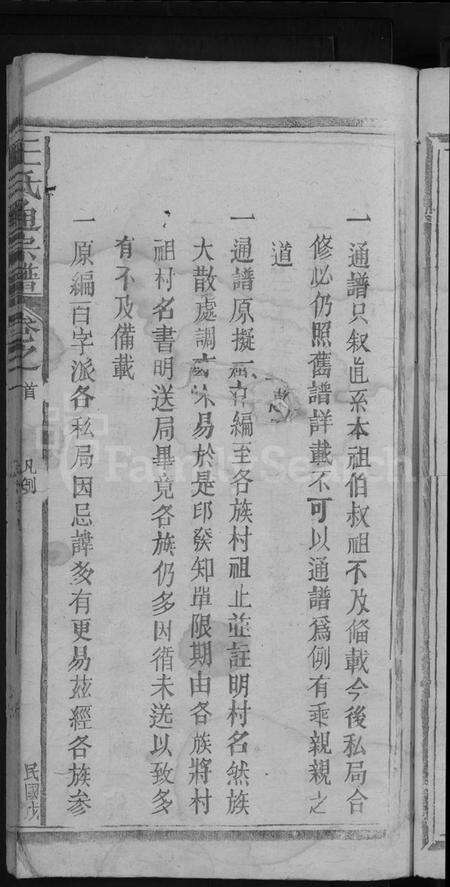 一通譜只叙直系本祖伯叔祖不及俻載今後私局合
修必仍照舊譜詳載不可以通譜爲例有乖親親之
道
一通譜原擬 編至各族村祖止並註明村名然族
大散處調 易於是印發知單限期由各族將村
祖村名書明送局畢竟各族仍多因循未送以致多
有不及備載
一原編百字派各私局因忌諱多有更易兹經各族參
王氏通宗譜 卷之首 凡例 民國戊
FamilySearch